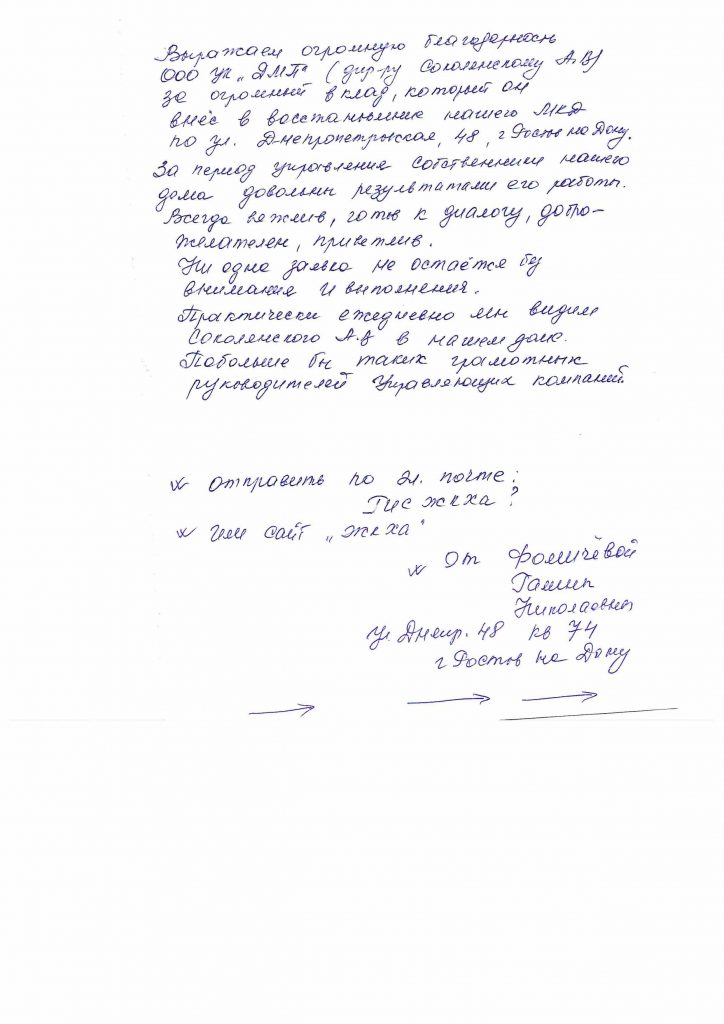 Выражаем огромную благодарность
ООО УК „ДМП" (дир-ру Соколенскому А.В)
за огромный вклад, который он
внёс в восстановление нашего МКД
по ул. Днепропетровская, 48, г Ростов на Дону.
За период управления собственники нашего
дома довольны результатами его работы.
Всегда вежлив, готов к диалогу, добро-
желателен, приветлив.
Ни одна заявка не остаётся без
внимания и выполнения.
Практически ежедневно мы видим
Соколенского А.В в нашем доме.
Побольше бы таких грамотных
руководителей Управляющих компаний.
отправить по эл. почте:
Гис жкха?
или сайт „ЖКХа"
От Фомичёвой
Галины
Николаевны
ул. Днепр. 48 кв 74
г Ростов на Дону